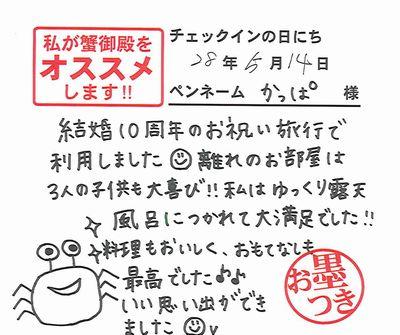 私が蟹御殿を
オススメ
します!!
チェックインの日にち
28年5月14日
ペンネーム かっぱ 様
結婚10周年のお祝い旅行で
利用しました☺離れのお部屋は
3人の子供も大喜び!!私はゆっくり露天
風呂につかれて大満足でした!!
料理もおいしく、おもてなしも
最高でした♪♪
いい思い出ができ
ました☺v
お墨つき